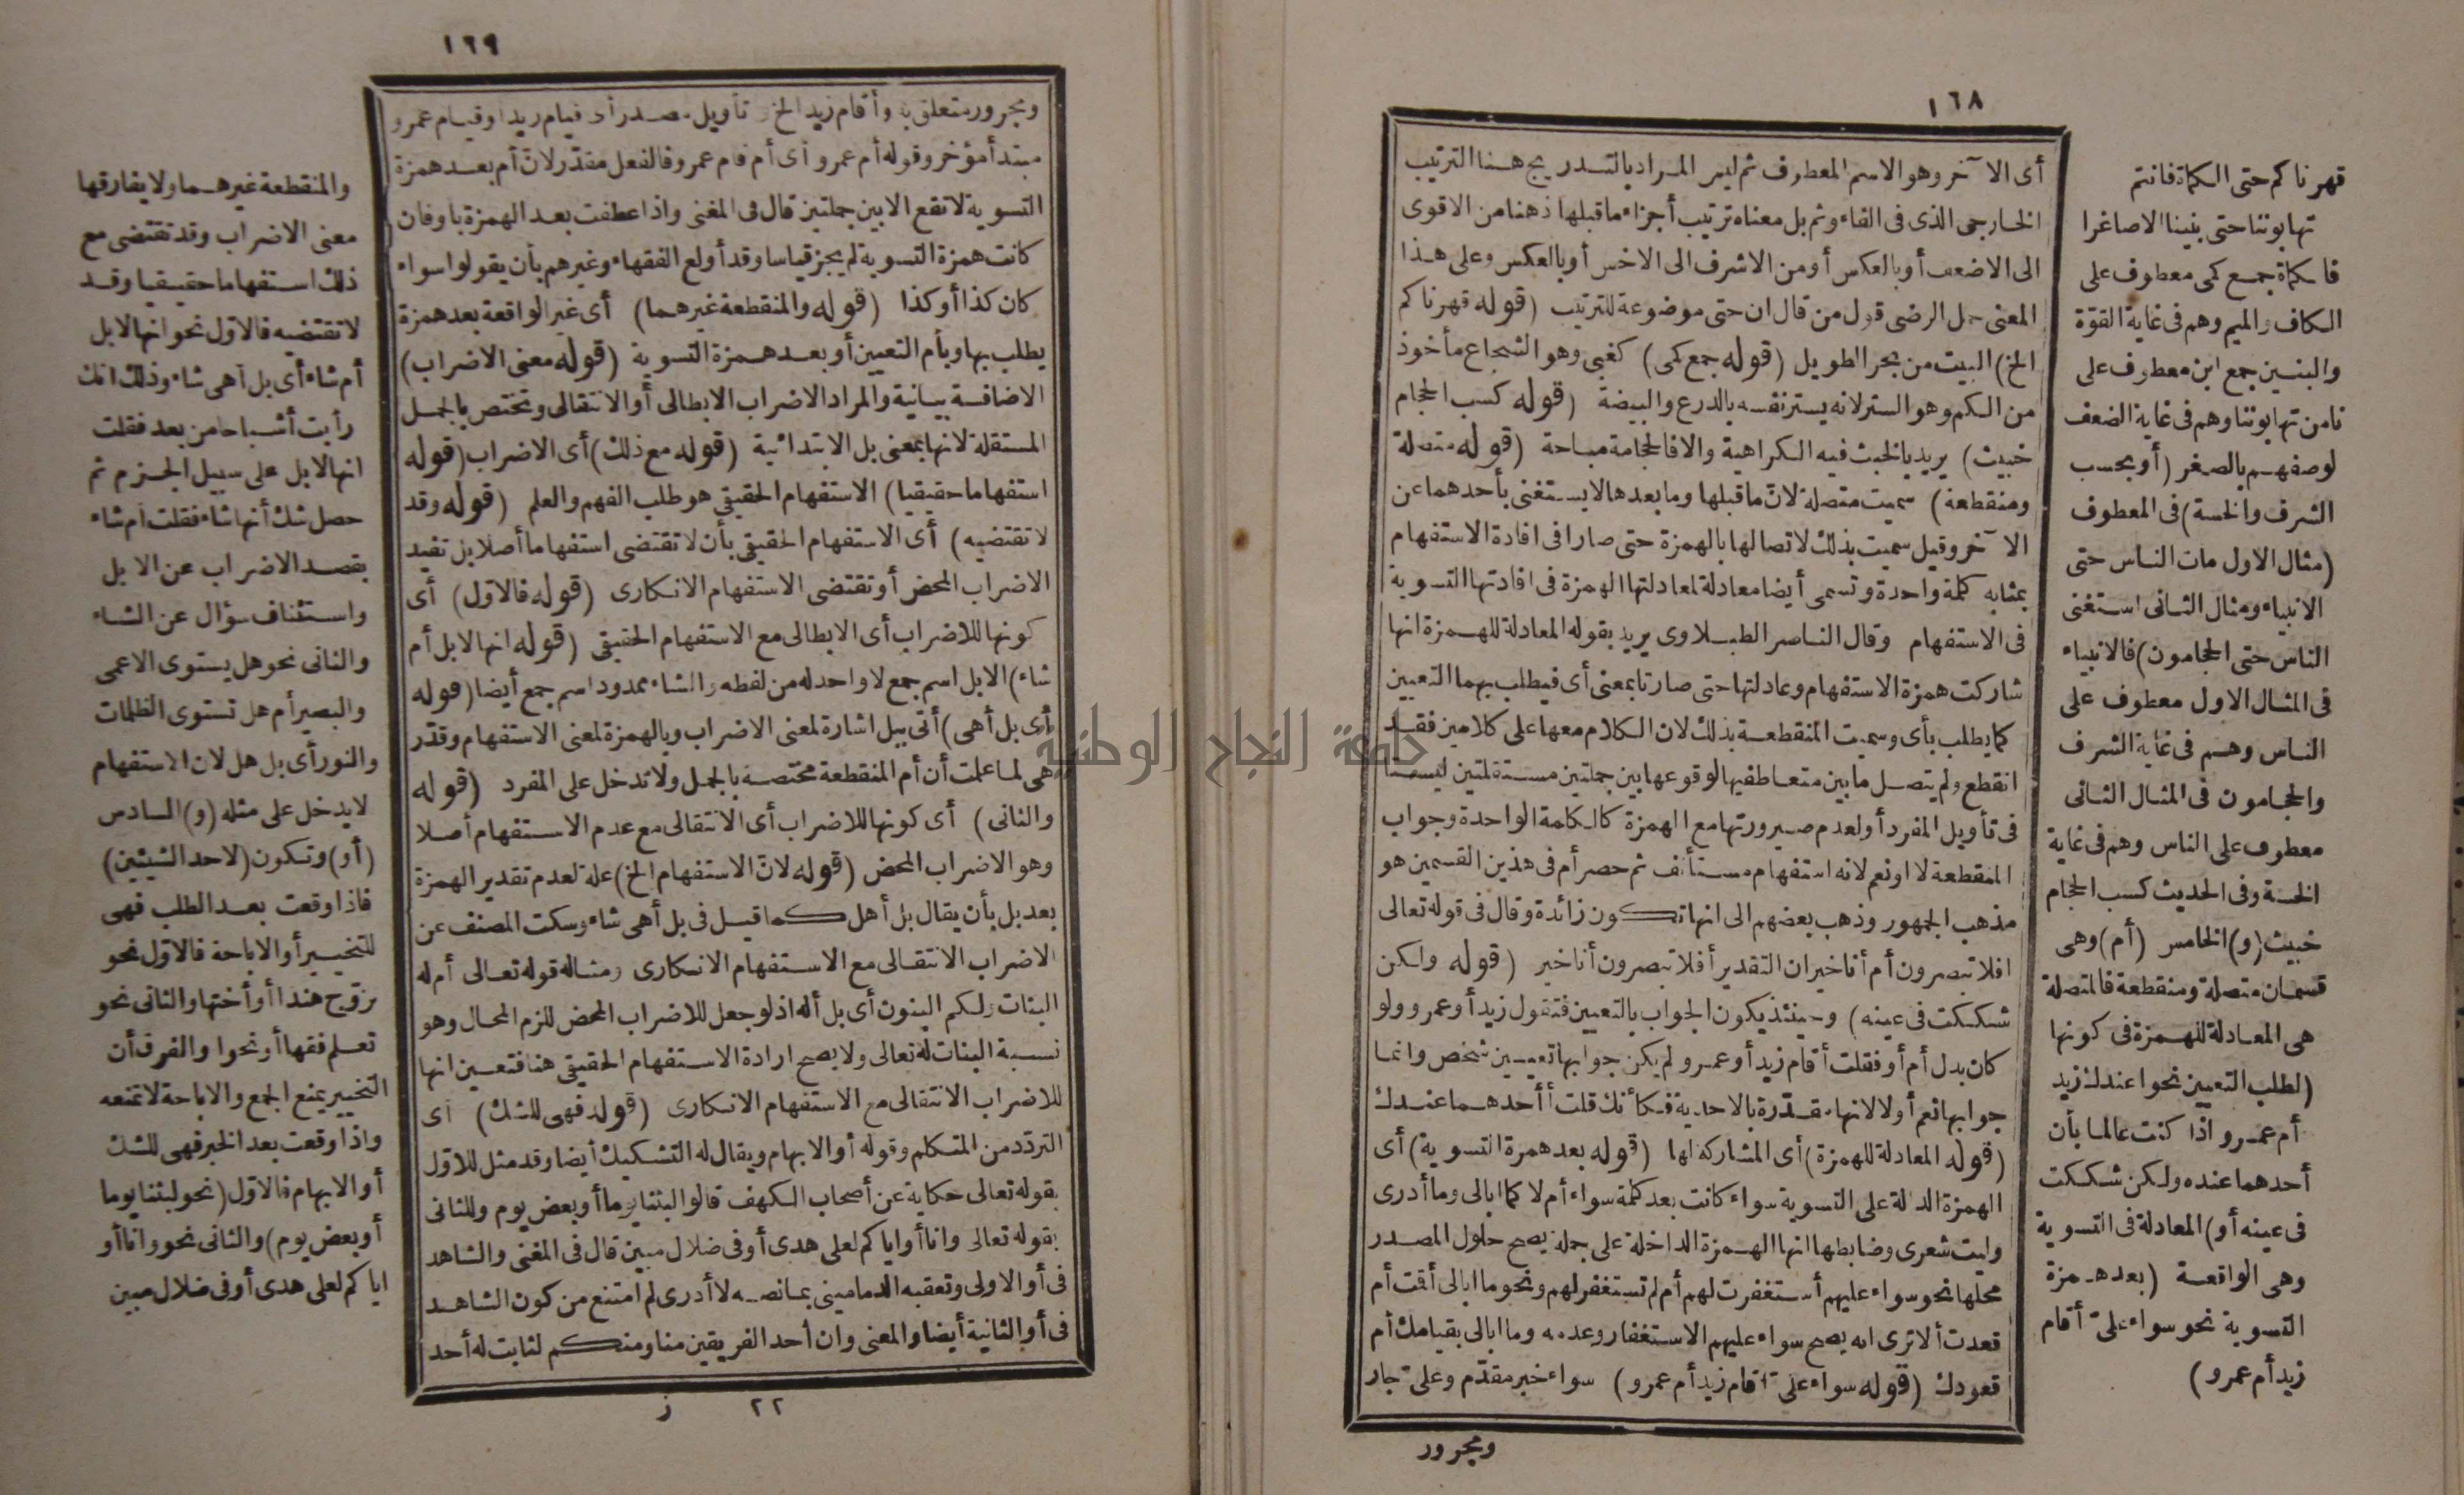 ١٦٨
قهرناكم حتى الكماة فانتم
تهابوننا حتى بنينا الاصاغرا
فالكماة جمع كمى معطوف على
الكاف والميم وهم فى غاية القوّة
والبنين جمع ابن معطوف على
نا من تهابوننا وهم فى غاية الضعف
لوصفهم بالصغر (أو بحسب
الشرف والخسة) فى المعطوف
(مثال الاول مات الناس حتى
الانبياء ومثال الثانى استغنى
الناس حتى الحجامون) فالانبياء
فى المثال الاول معطوف على
الناس وهم فى غاية الشرف
والحجامون فى المثال الثانى
معطوف على الناس وهم فى غاية
الخسة وفى الحديث كسب الحجام
خبيث (و) الخامس (أم) وهى
قسمان متصلة ومنقطعة فالمتصلة
هى المعادلة للهمزة فى كونها
(لطلب التعيين نحو أعندك زيد
أم عمرو اذا كنت عالما بأن
أحدهما عنده ولكن شككت
فى عينه أو) المعادلة فى التسوية
وهى الواقعة (بعد همزة
التسوية نحو سواء علىّ أقام
زيد أم عمرو)
أى الآخر وهو الاسم المعطوف ثم ليس المراد بالتدريج هنا الترتيب
الخارجى الذى فى الفاء وثم بل معناه ترتيب أجزاء ما قبلها ذهنا من الاقوى
الى الاضعف أو بالعكس أو من الاشرف الى الاخس أو بالعكس وعلى هذا
المعنى حمل الرضى قول من قال ان حتى موضوعة للترتيب (قوله قهرناكم
الخ) البيت من بحر الطويل (قوله جمع كمى) كغبى وهو الشجاع مأخوذ
من الكم وهو الستر لانه يستر نفسه بالدرع والبيضة (قوله كسب الحجام
خبيث) يريد بالخبث فيه الكراهية والا فالحجامة مباحة (قوله متصلة
ومنقطعة) سميت متصلة لانّ ما قبلها وما بعدها لا يستغنى بأحدهما عن
الآخر وقيل سميت بذلك لاتصالها بالهمزة حتى صارا فى افادة الاستفهام
بمثابة كلمة واحدة وتسمى أيضا معادلة لمعادلتها الهمزة فى افادتها التسوية
فى الاستفهام وقال الناصر الطبلاوى يريد بقوله المعادلة للهمزة انها
شاركت همزة الاستفهام وعادلتها حتى صارتا بمعنى أى فيطلب بهما التعيين
كما يطلب بأى وسميت المنقطعة بذلك لان الكلام معها على كلامين فقد
انقطع ولم يتصل ما بين متعاطفيها لوقوعها بين جملتين مستقلتين ليستا
فى تأويل المفرد أو لعدم صيرورتها مع الهمزة كالكلمة الواحدة وجواب
المنقطعة لا او نعم لانه استفهام مستأنف ثم حصر أم فى هذين القسمين هو
مذهب الجمهور وذهب بعضهم الى انها تكون زائدة وقال فى قوله تعالى
افلا تبصرون أم أنا خير ان التقدير أفلا تبصرون أنا خير (قوله ولكن
شككت فى عينه) وحينئذ يكون الجواب بالتعيين فتقول زيد أو عمرو ولو
كان بدل أم أو فقلت أقام زيد أو عمرو لم يكن جوابها تعيين شخص وانما
جوابها نعم أو لا لانها مقدّرة بالاحدية فكأنك قلت أأحدهما عندك
(قوله المعادلة للهمزة) أى المشاركة لها (قوله بعد همزة التسوية) أى
الهمزة الدالة على التسوية سواء كانت بعد كلمة سواء أم لا كما ابالى وما أدرى
وليت شعرى وضابطها انها الهمزة الداخلة على جملة يصح حلول المصدر
محلها نحو سواء عليهم أستغفرت لهم أم لم تستغفر لهم ونحو ما ابالى أقمت أم
قعدت ألا ترى انه يصح سواء عليهم الاستغفار وعدمه وما ابالى بقيامك أم
قعودك (قوله سواء علىّ أقام زيد أم عمرو) سواء خبر مقدّم وعلىّ جار
ومجرور
١٦٩
ومجرور متعلق به وأقام زيد الخ تأويل مصدر أى قيام زيد أو قيام عمرو
مبتدأ مؤخر وقوله أم عمرو أى أم قام عمرو فالفعل مقدّر لانّ أم بعد همزة
التسوية لا تقع الا بين جملتين قال فى المغنى واذا عطفت بعد الهمزة باو فان
كانت همزة التسوية لم يجز قياسا وقد أولع الفقهاء وغيرهم بأن يقولوا سواء
كان كذا أو كذا (قوله والمنقطعة غيرهما) أى غير الواقعة بعد همزة
يطلب بها وبأم التعيين أو بعد همزة التسوية (قوله معنى الاضراب)
الاضافة بيانية والمراد الاضراب الابطالى أو الانتقالى وتختص بالجمل
المستقلة لانها بمعنى بل الابتدائية (قوله مع ذلك) أى الاضراب (قوله
استفهاما حقيقيا) الاستفهام الحقيقى هو طلب الفهم والعلم (قوله وقد
لا تقتضيه) أى الاستفهام الحقيقى بأن لا تقتضى استفهاما أصلا بل تفيد
الاضراب المحض أو تقتضى الاستفهام الانكارى (قوله فالاول) أى
كونها للاضراب أى الابطالى مع الاستفهام الحقيقى (قوله انها لابل أم
شاء) الابل اسم جمع لا واحد له من لفظه والشاء ممدود اسم جمع أيضا (قوله
أى بل أهى) أتى ببل اشارة لمعنى الاضراب وبالهمزة لمعنى الاستفهام وقدّر
هى لما علمت أن أم المنقطعة مختصة بالجمل ولا تدخل على المفرد (قوله
والثانى) أى كونها للاضراب أى الانتقالى مع عدم الاستفهام أصلا
وهو الاضراب المحض (قوله لانّ الاستفهام الخ) علة لعدم تقدير الهمزة
بعد بل بأن يقال بل أهل كما قيل فى بل أهى شاء وسكت المصنف عن
الاضراب الانتقالى مع الاستفهام الانكارى ومثاله قوله تعالى أم له
البنات ولكم البنون أى بل أله اذ لو جعل للاضراب المحض للزم المحال وهو
نسبة البنات له تعالى ولا يصح ارادة الاستفهام الحقيقى هنا فتعين انها
للاضراب الانتقالى مع الاستفهام الانكارى (قوله فهى للشك) أى
التردّد من المتكلم وقوله أو الابهام ويقال له التشكيك أيضا وقد مثل للاوّل
بقوله تعالى حكاية عن أصحاب الكهف قالوا لبثنا يوما أو بعض يوم وللثانى
بقوله تعالى وانا أو اياكم لعلى هدى أو فى ضلال مبين قال فى المغنى والشاهد
فى أو الاولى وتعقبه الدمامينى بما نصه لا أدرى لم امتنع من كون الشاهد
فى أو الثانية أيضا والمعنى وان أحد الفريقين منا ومنكم لثابت له أحد
٢٢ ز
والمنقطعة غيرهما ولا يفارقها
معنى الاضراب وقد تقتضى مع
ذلك استفهاما حقيقيا وقد
لا تقتضيه فالاوّل نحو انها لابل
أم شاء أى بل أهى شاء وذلك انك
رأيت أشباحا من بعد فقلت
انها لابل على سبيل الجزم ثم
حصل شك أنها شاء فقلت أم شاء
بقصد الاضراب عن الابل
واستئناف سؤال عن الشاء
والثانى نحو هل يستوى الاعمى
والبصير أم هل تستوى الظلمات
والنور أى بل هل لان الاستفهام
لا يدخل على مثله (و) السادس
(أو) وتكون (لاحد الشيئين)
فاذا وقعت بعد الطلب فهى
للتخيير أو الاباحة فالاوّل نحو
تزوّج هندا أو أختها والثانى نحو
تعلم فقها أو نحوا والفرق أن
التخيير يمنع الجمع والاباحة لا تمنعه
واذا وقعت بعد الخبر فهى للشك
أو الابهام فالاوّل (نحو لبثنا يوما
أو بعض يوم) والثانى نحو وانا أو
اياكم لعلى هدى أو فى ضلال مبين
جامعة النجاح الوطنية